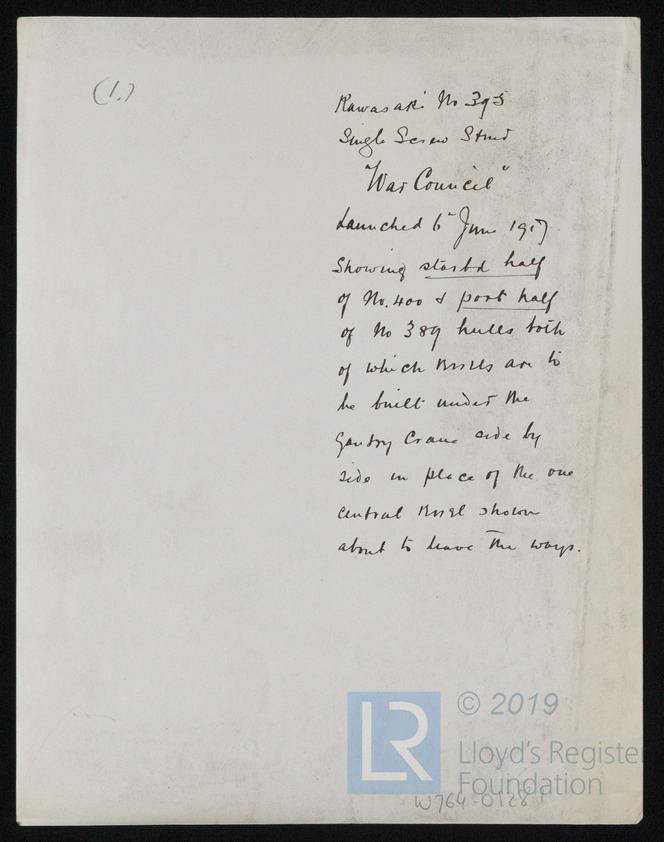 (1.)
Kawasaki No 395
Single Screw Stmr
"War Council"
Launched 6th June 1917
Showing starbd half
of No. 400 & port half
of No 389 hulls both
of which vessels are to
be built under the
Gantry Crane side by
side in place of the one
central vessel shown
about to leave the ways.
LR
© 2019
Lloyd's Register
Foundation
W764-0128